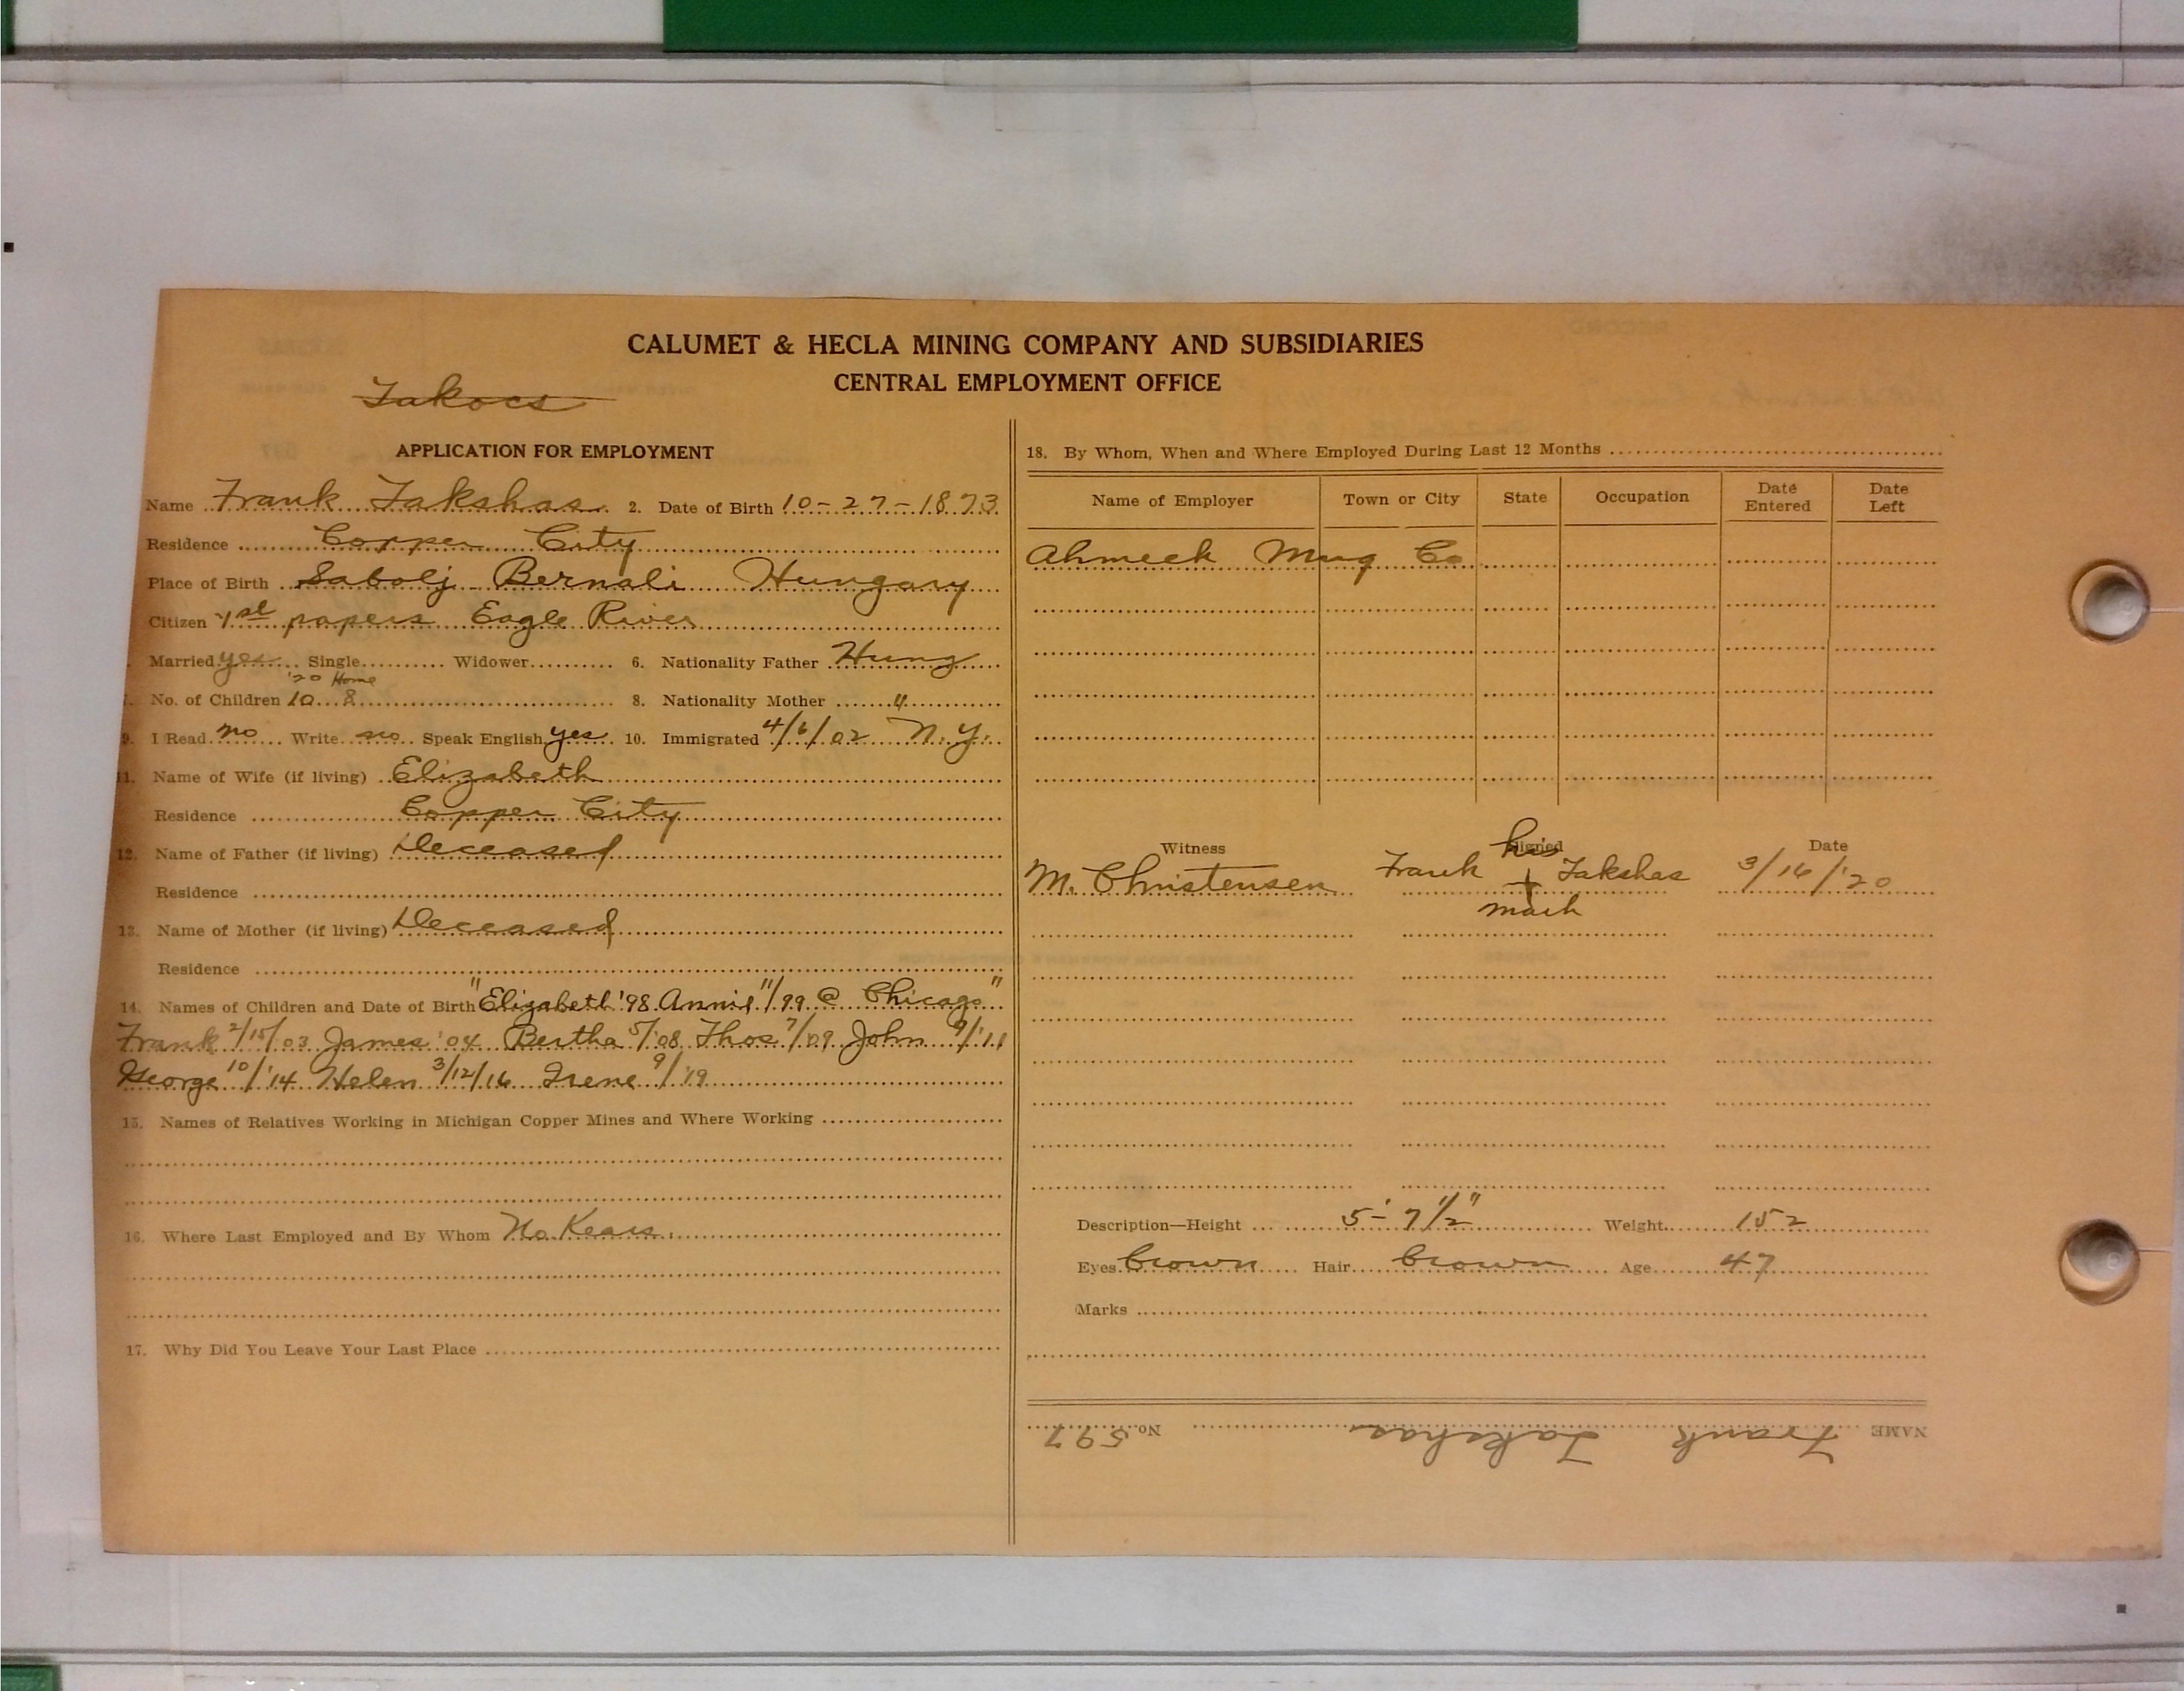 CALUMET & HECLA MINING COMPANY AND SUBSIDIARIES
CENTRAL EMPLOYMENT OFFICE
Takocs
APPLICATION FOR EMPLOYMENT
Name Frank Takshas 2. Date of Birth 10-27-1873
Residence Copper City
Place of Birth Sabolj Bernali Hungary
Citizen 1st papers Eagle River
Married yes Single Widower 6. Nationality Father Hung
'20 Home
7. No. of Children 10 8 8. Nationality Mother "
9. I Read no Write no Speak English yes 10. Immigrated 4/6/02 N.Y.
11. Name of Wife (if living) Elizabeth
Residence Copper City
12. Name of Father (if living) Deceased
Residence
13. Name of Mother (if living) Deceased
Residence
14. Names of Children and Date of Birth "Elizabeth '98 Annie 11/99 @ Chicago"
Frank 2/15/03 James '04 Bertha 5/'08 Thos 7/09 John 9/'11
George 10/'14 Helen 3/12/16 Irene 9/'19
15. Names of Relatives Working in Michigan Copper Mines and Where Working
16. Where Last Employed and By Whom No. Kears.
17. Why Did You Leave Your Last Place
18. By Whom, When and Where Employed During Last 12 Months
Name of Employer Town or City State Occupation Date Entered Date Left
Ahmeek Mng Co
Witness Signed Date
his
M. Christensen Frank + Takshas 3/16/'20
mark
Description—Height 5'-7 1/2" Weight 152
Eyes brown Hair brown Age 47
Marks
NAME Frank Takshas No. 597